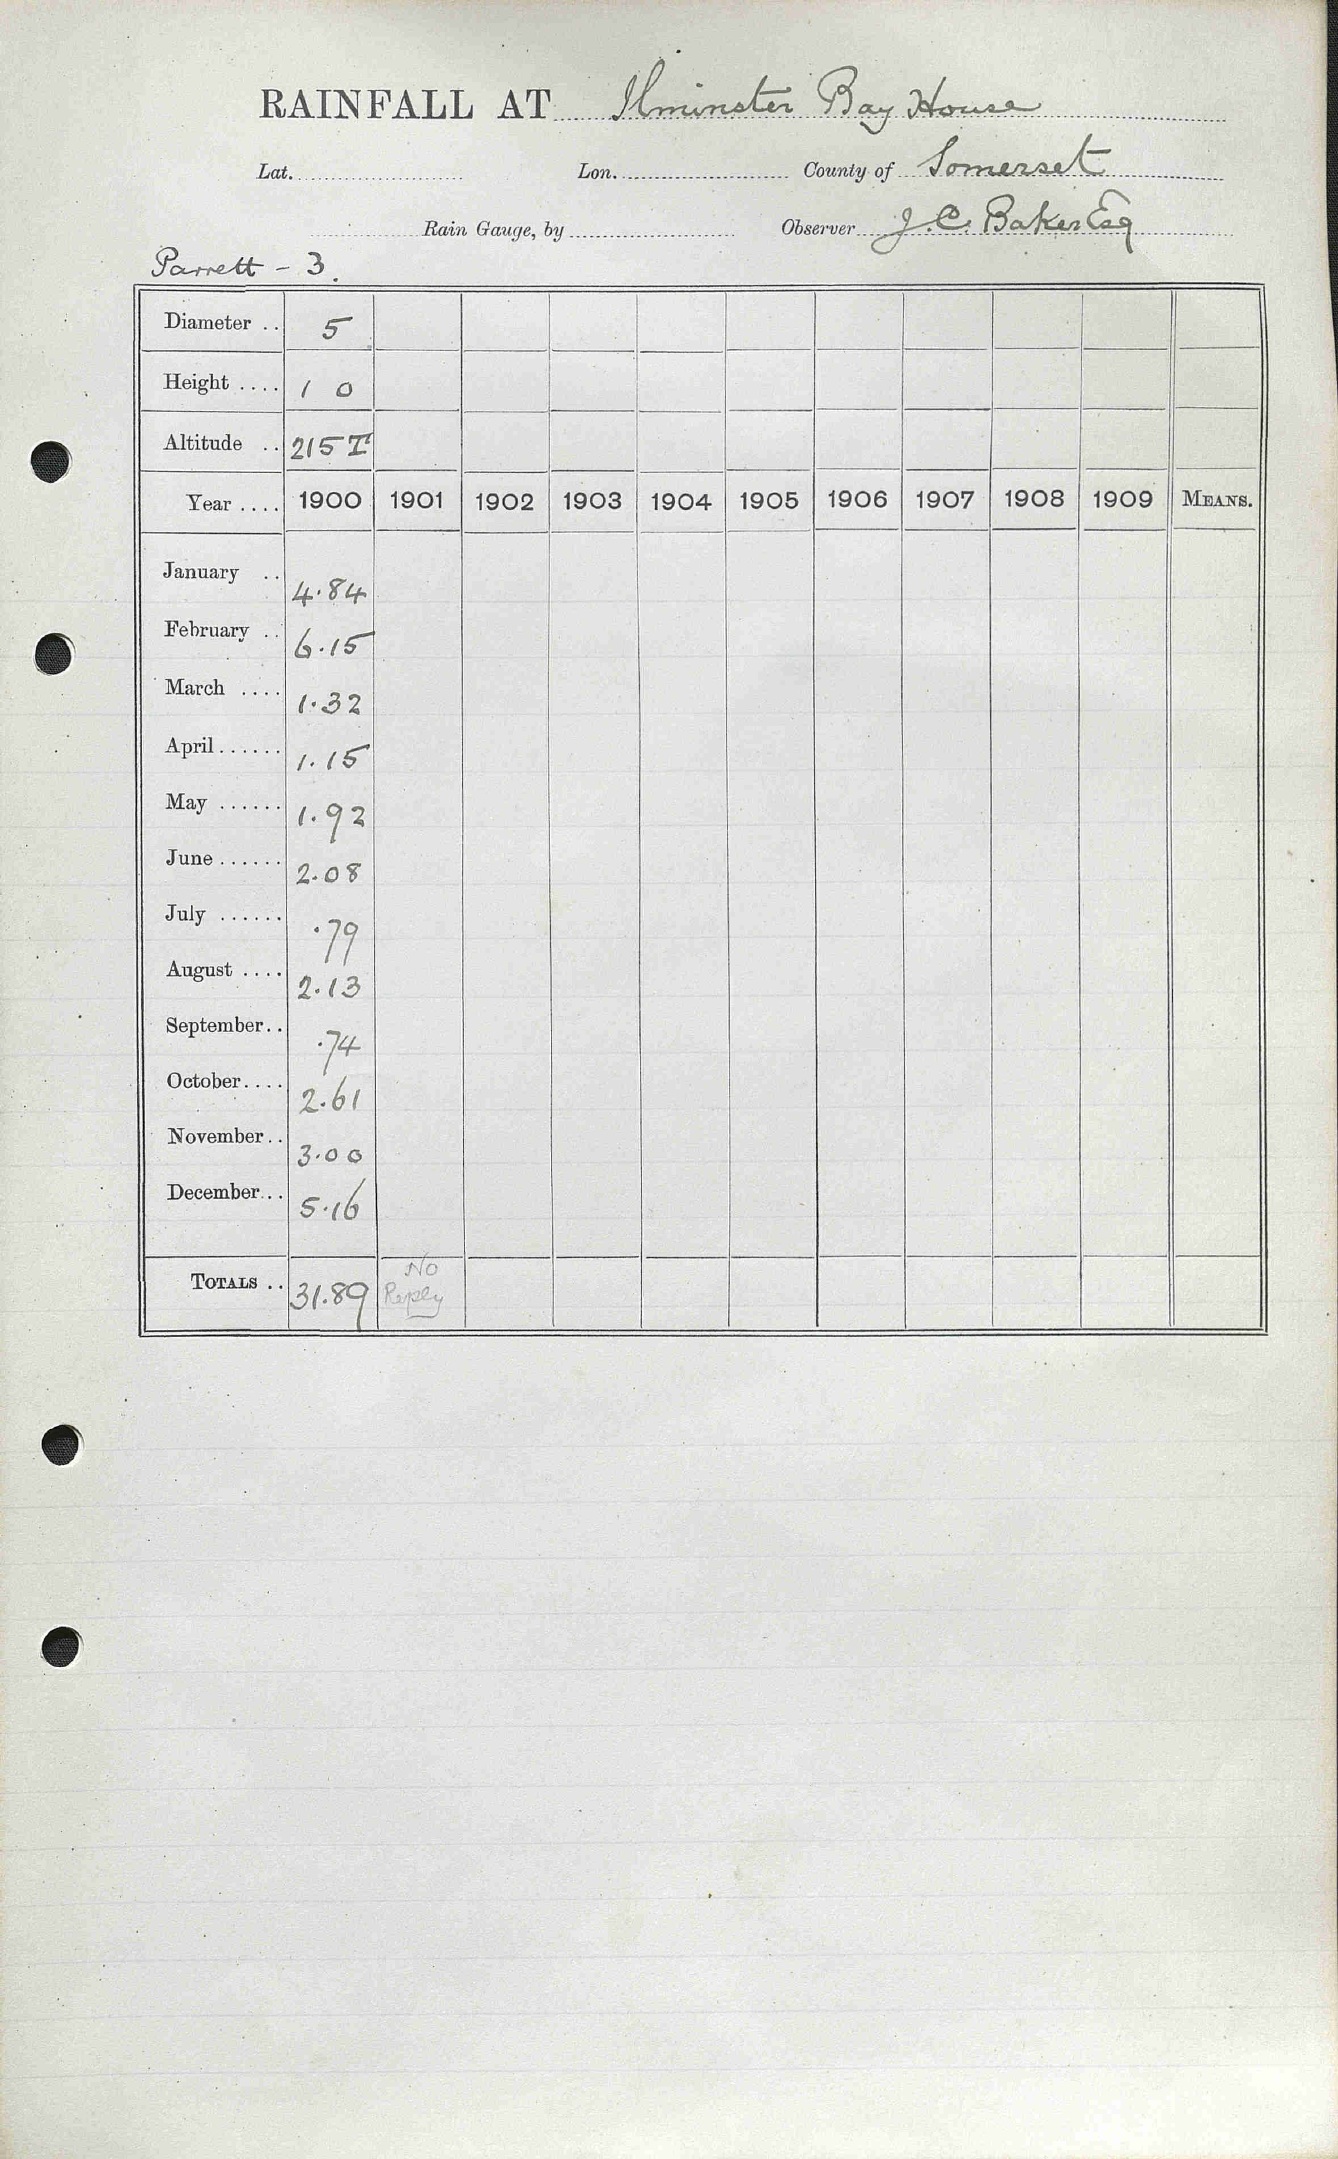 RAINFALL AT Ilminster Bay House
Lat. Lon. County of Somerset
Rain Gauge, by Observer J. C. Baker Esq
Parrett - 3.
Diameter .. 5
Height .... 1 0
Altitude .. 215 T
Year .... 1900 1901 1902 1903 1904 1905 1906 1907 1908 1909 MEANS.
January .. 4.84
February .. 6.15
March .... 1.32
April ...... 1.15
May ...... 1.92
June ...... 2.08
July ...... .79
August .... 2.13
September.. .74
October.... 2.61
November.. 3.00
December... 5.16
TOTALS .. 31.89 No Reply